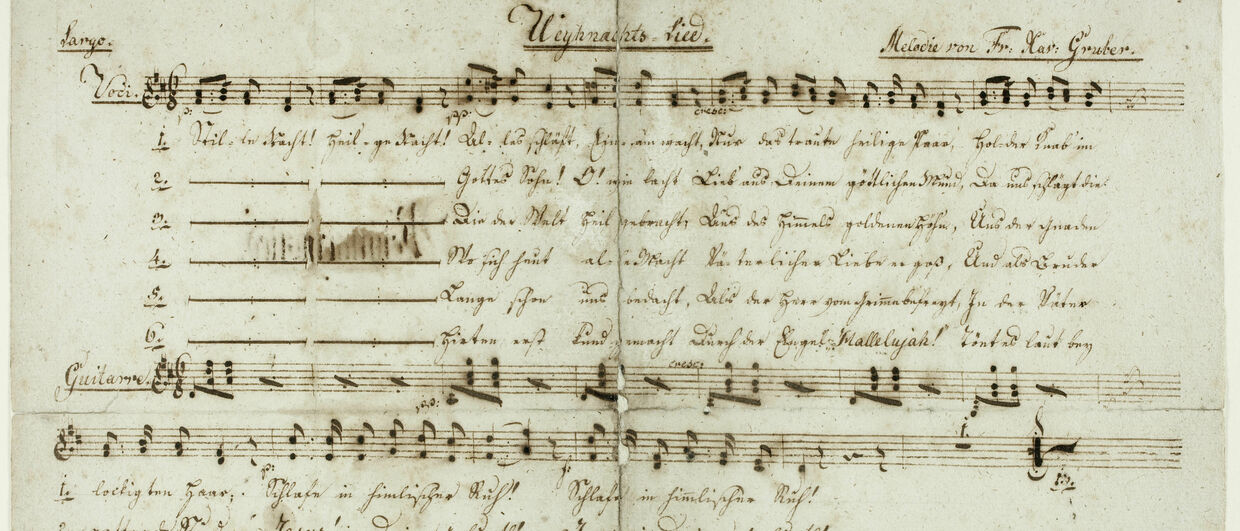 Weyhnachts-Lied.
Largo. Melodie von Fr: Xav: Gruber.
Voci.
p: pp: cresc:
1. Stil-le Nacht! Heil-ge Nacht! Al-les schläft, Ein-sam wacht, Nur das traute heilige Paar, Hol-der Knab im
2. Gottes Sohn! O! wie lacht Lieb aus Deinem göttlichen Mund, Da uns schlägt die
3. Die der Welt Heil gebracht, Aus des Himmels goldenen Höhn, Uns der Gnaden
4. Wo sich heut alle Macht Väterlicher Liebe ergoß, Und als Bruder
5. Lange schon uns bedacht, Als der Herr vom Grimme befreyt, In der Väter
6. Hirten erst kundgemacht Durch der Engel "Hallelujah!" Tönt es laut bey
Guitarre.
cresc:
pp:
p: p:
1. lockigten Haar; Schlafe in himlischer Ruh! Schlafe in himmlischer Ruh!